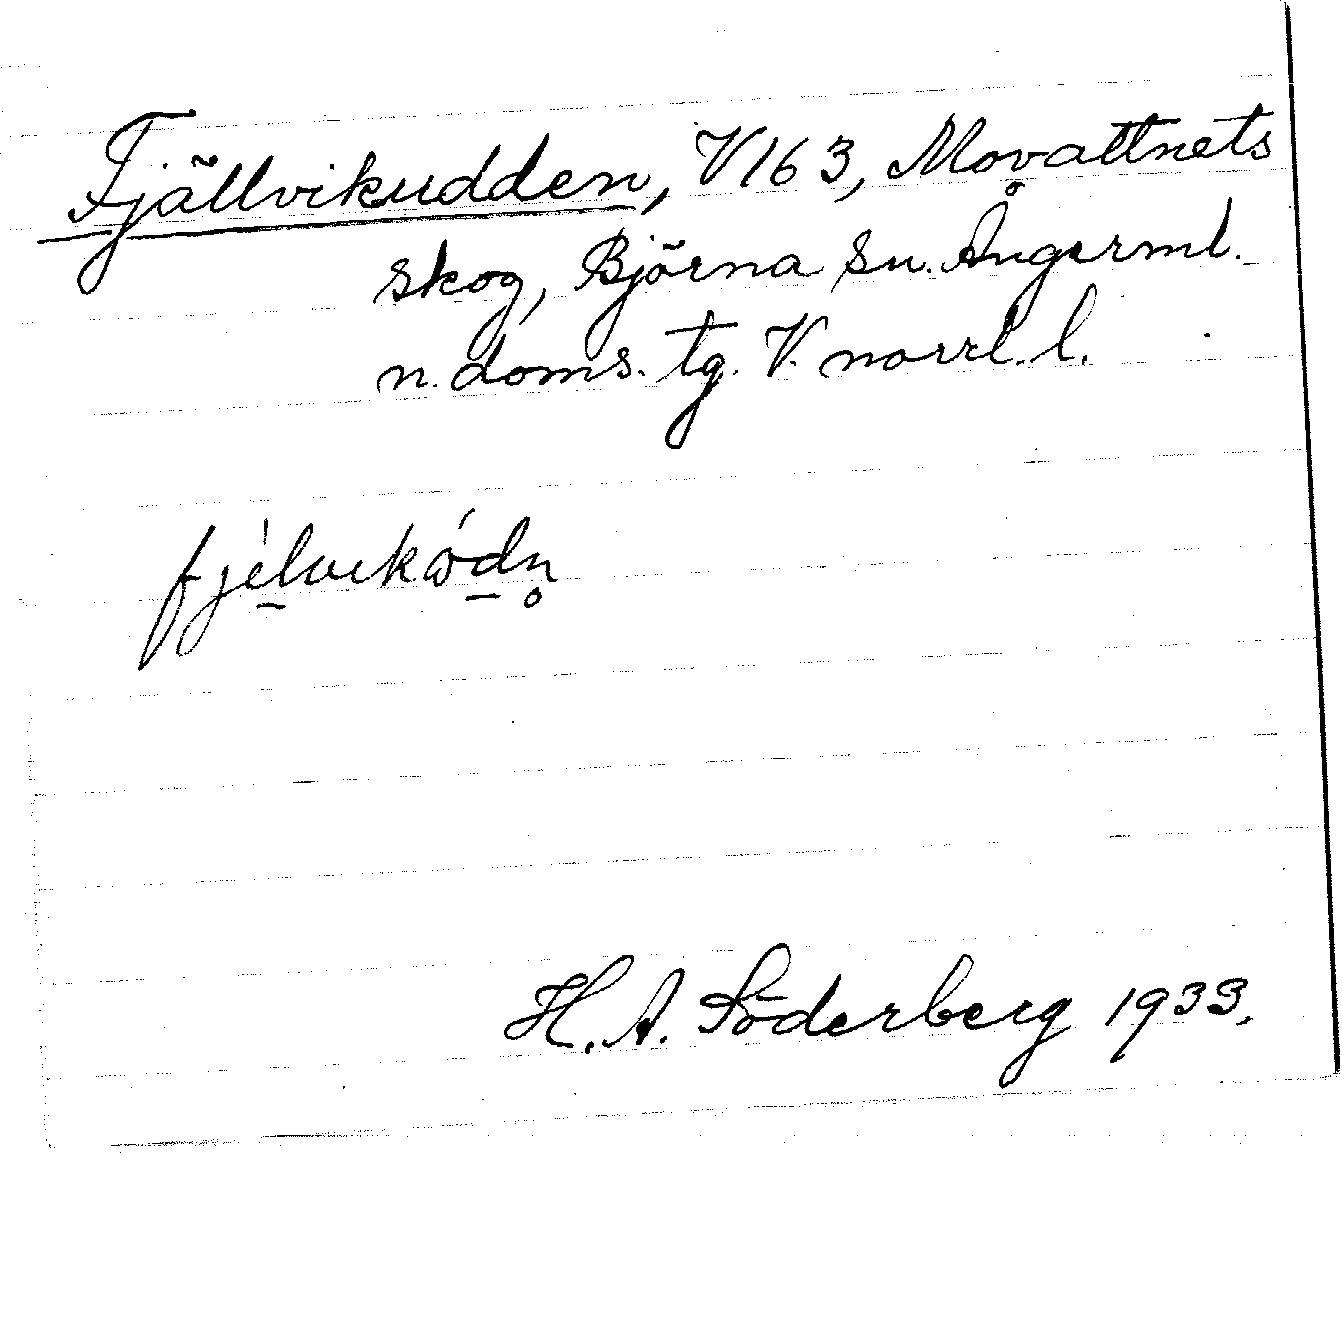 Fjällvikudden, V163, Movattnets
skog, Björna sn. Ångerml.
n. doms. tg. V. norrl. l.
fjèlvikódn̥
H. A. Söderberg 1933.